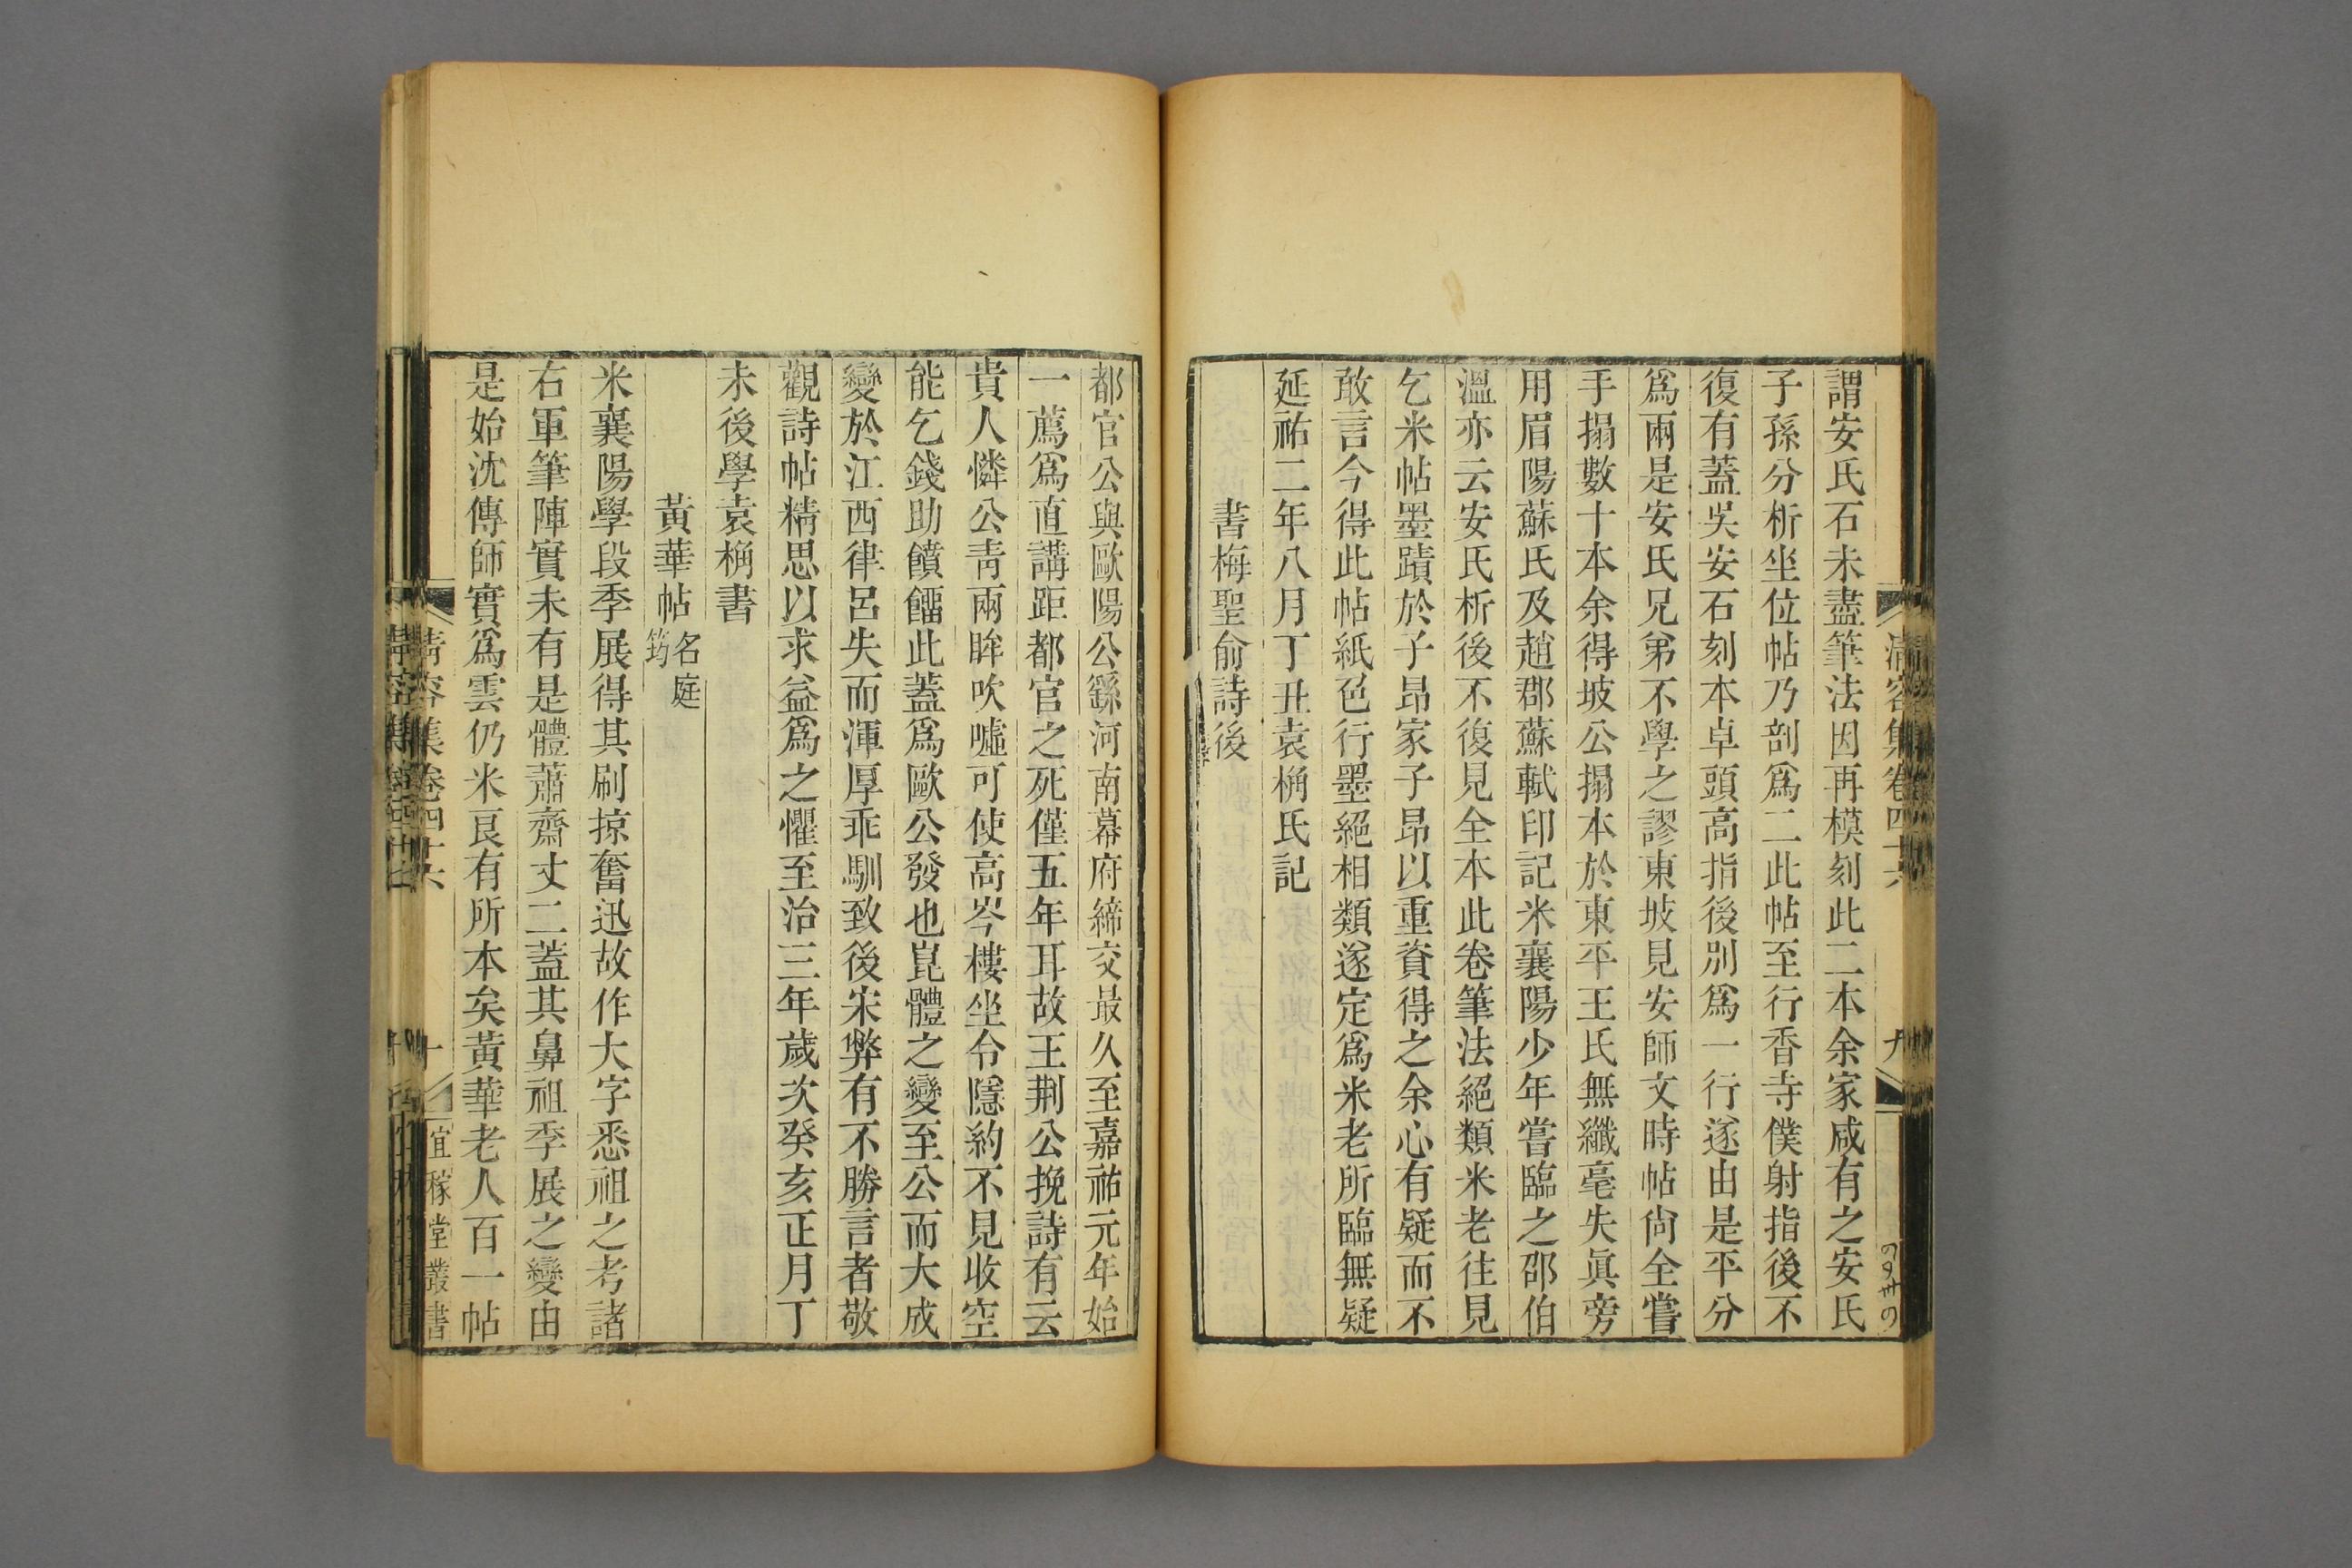 謂安氏石未盡筆法因再模刻此二本余家咸有之安氏
子孫分析坐位帖乃剖爲二此帖至行香寺僕射指後不
復有蓋吳安石刻本卓頭高指後別爲一行遂由是平分
爲兩是安氏兄弟不學之謬東坡見安師文時帖尙全嘗
手搨數十本余得坡公搨本於東平王氏無纖毫失眞旁
用眉陽蘇氏及趙郡蘇軾印記米襄陽少年嘗臨之邵伯
溫亦云安氏析後不復見全本此卷筆法絕類米老往見
乞米帖墨蹟於子昂家子昂以重資得之余心有疑而不
敢言今得此帖紙色行墨絕相類遂定爲米老所臨無疑
延祐二年八月丁丑袁桷氏記
書梅聖俞詩後
都官公與歐陽公繇河南幕府締交最久至嘉祐元年始
一薦爲直講距都官之死僅五年耳故王荆公挽詩有云
貴人憐公靑兩眸吹噓可使高岑樓坐令隱約不見收空
能乞錢助饋餾此蓋爲歐公發也崑體之變至公而大成
變於江西律呂失而渾厚乖馴致後宋弊有不勝言者敬
觀詩帖精思以求益爲之懼至治三年歲次癸亥正月丁
未後學袁桷書
黃華帖名庭筠
米襄陽學段季展得其刷掠奮迅故作大字悉祖之考諸
右軍筆陣實未有是體蕭齋丈二蓋其鼻祖季展之變由
是始沈傳師實爲雲仍米艮有所本矣黃華老人百一帖
清容集卷四十六
十
宜稼堂叢書